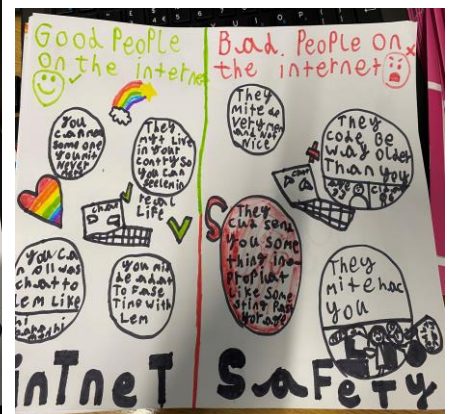 Good People
on the internet
Bad. People On
the internet
You
can me
some one
you nit
Never
They
myt Live
in your
contry So
you can
seelem in
real
Life
chat
You Ca
n oll was
chat to
Lem Like
You mi
be abal
To Fase
Time With
Lem
They
mite be
very men
and Not
Nice
They
code Be
way older
Than you
They
cud send
you some
thing ine
propiat
Like some
thing Past
yor age
They
mite hac
you
inTneT SaFeTy